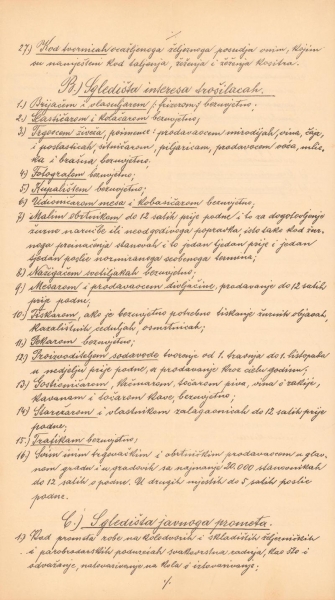 27.) Kod tvornicah ocakljenoga željeznoga posudja onim, kojim
su namješteni kod taljenja, žiženja i ižženja kositra.
B.) S gledišta interesa trošilacah.
1.) Brijačem i vlasuljarem / frizerom / bezuvjetno;
2.) Slastičarem i kolačarem bezuvjetno;
3.) Trgovcem živeža, poimence: prodavaocem mirodijah, vina, čaja,
i poslasticah, sitničarom, piljaricam, prodavaocem voća, mlie-
ka i brašna bezuvjetno.
4.) Fotografom bezuvjetno;
5.) Kupalištem bezuvjetno;
6.) Udioničarom mesa i kobasičarom bezuvjetno;
7.) Malim obrtnikom do 12 satih prije podne i to za dogotovljenje
žurne narudžbe ili neodgodivoga popravka, isto tako kod žur-
noga preinačenja stanovah i to jedan tjedan prije i jedan
tjedan poslie normiranoga sel­benoga termina;
8.) Nažigačem svetiljakah bezuvjetno;
9.) Mesarom i prodavaocem divljačine, prodavanje do 12 satih
prije podne.
10.) Tiskarom, ako je bezuvjetno potrebno tiskanje žurnih objavah,
kazalištnih ceduljah, osmrtnicah;
11.) Pekarom bezuvjetno;
12.) Proizvoditeljem sodavode tvorenje od 1. travnja do 1. listopada
u nedjelju prije podne, a prodavanje kroz cielu godinu;
13.) Gostioničarom, krčmarom, točarom piva, vina i rakije,
kavanam i točarom kave bezuvjetno;
14.) Starežarom i vlastnikom zalagaonicah do 12 satih prije
podne;
15.) Trafikam bezuvjetno;
16.) Svim inim trgovačkim i obrtničkim prodavaocem u glav-
nom gradu i u gradovih sa najmanje 20.000 stanovnikah
do 12 satih o podne. U drugih mjestih do 5 satih poslie
podne.
C.) S gledišta javnoga prometa.
1.) Kod prometa robe na kolodvorih i skladištih željezničkih
i parobrodarskih poduzećah svakovrstna radnja, kao što i
odvažanje, natovarivanje na kola i iztovarivanje;